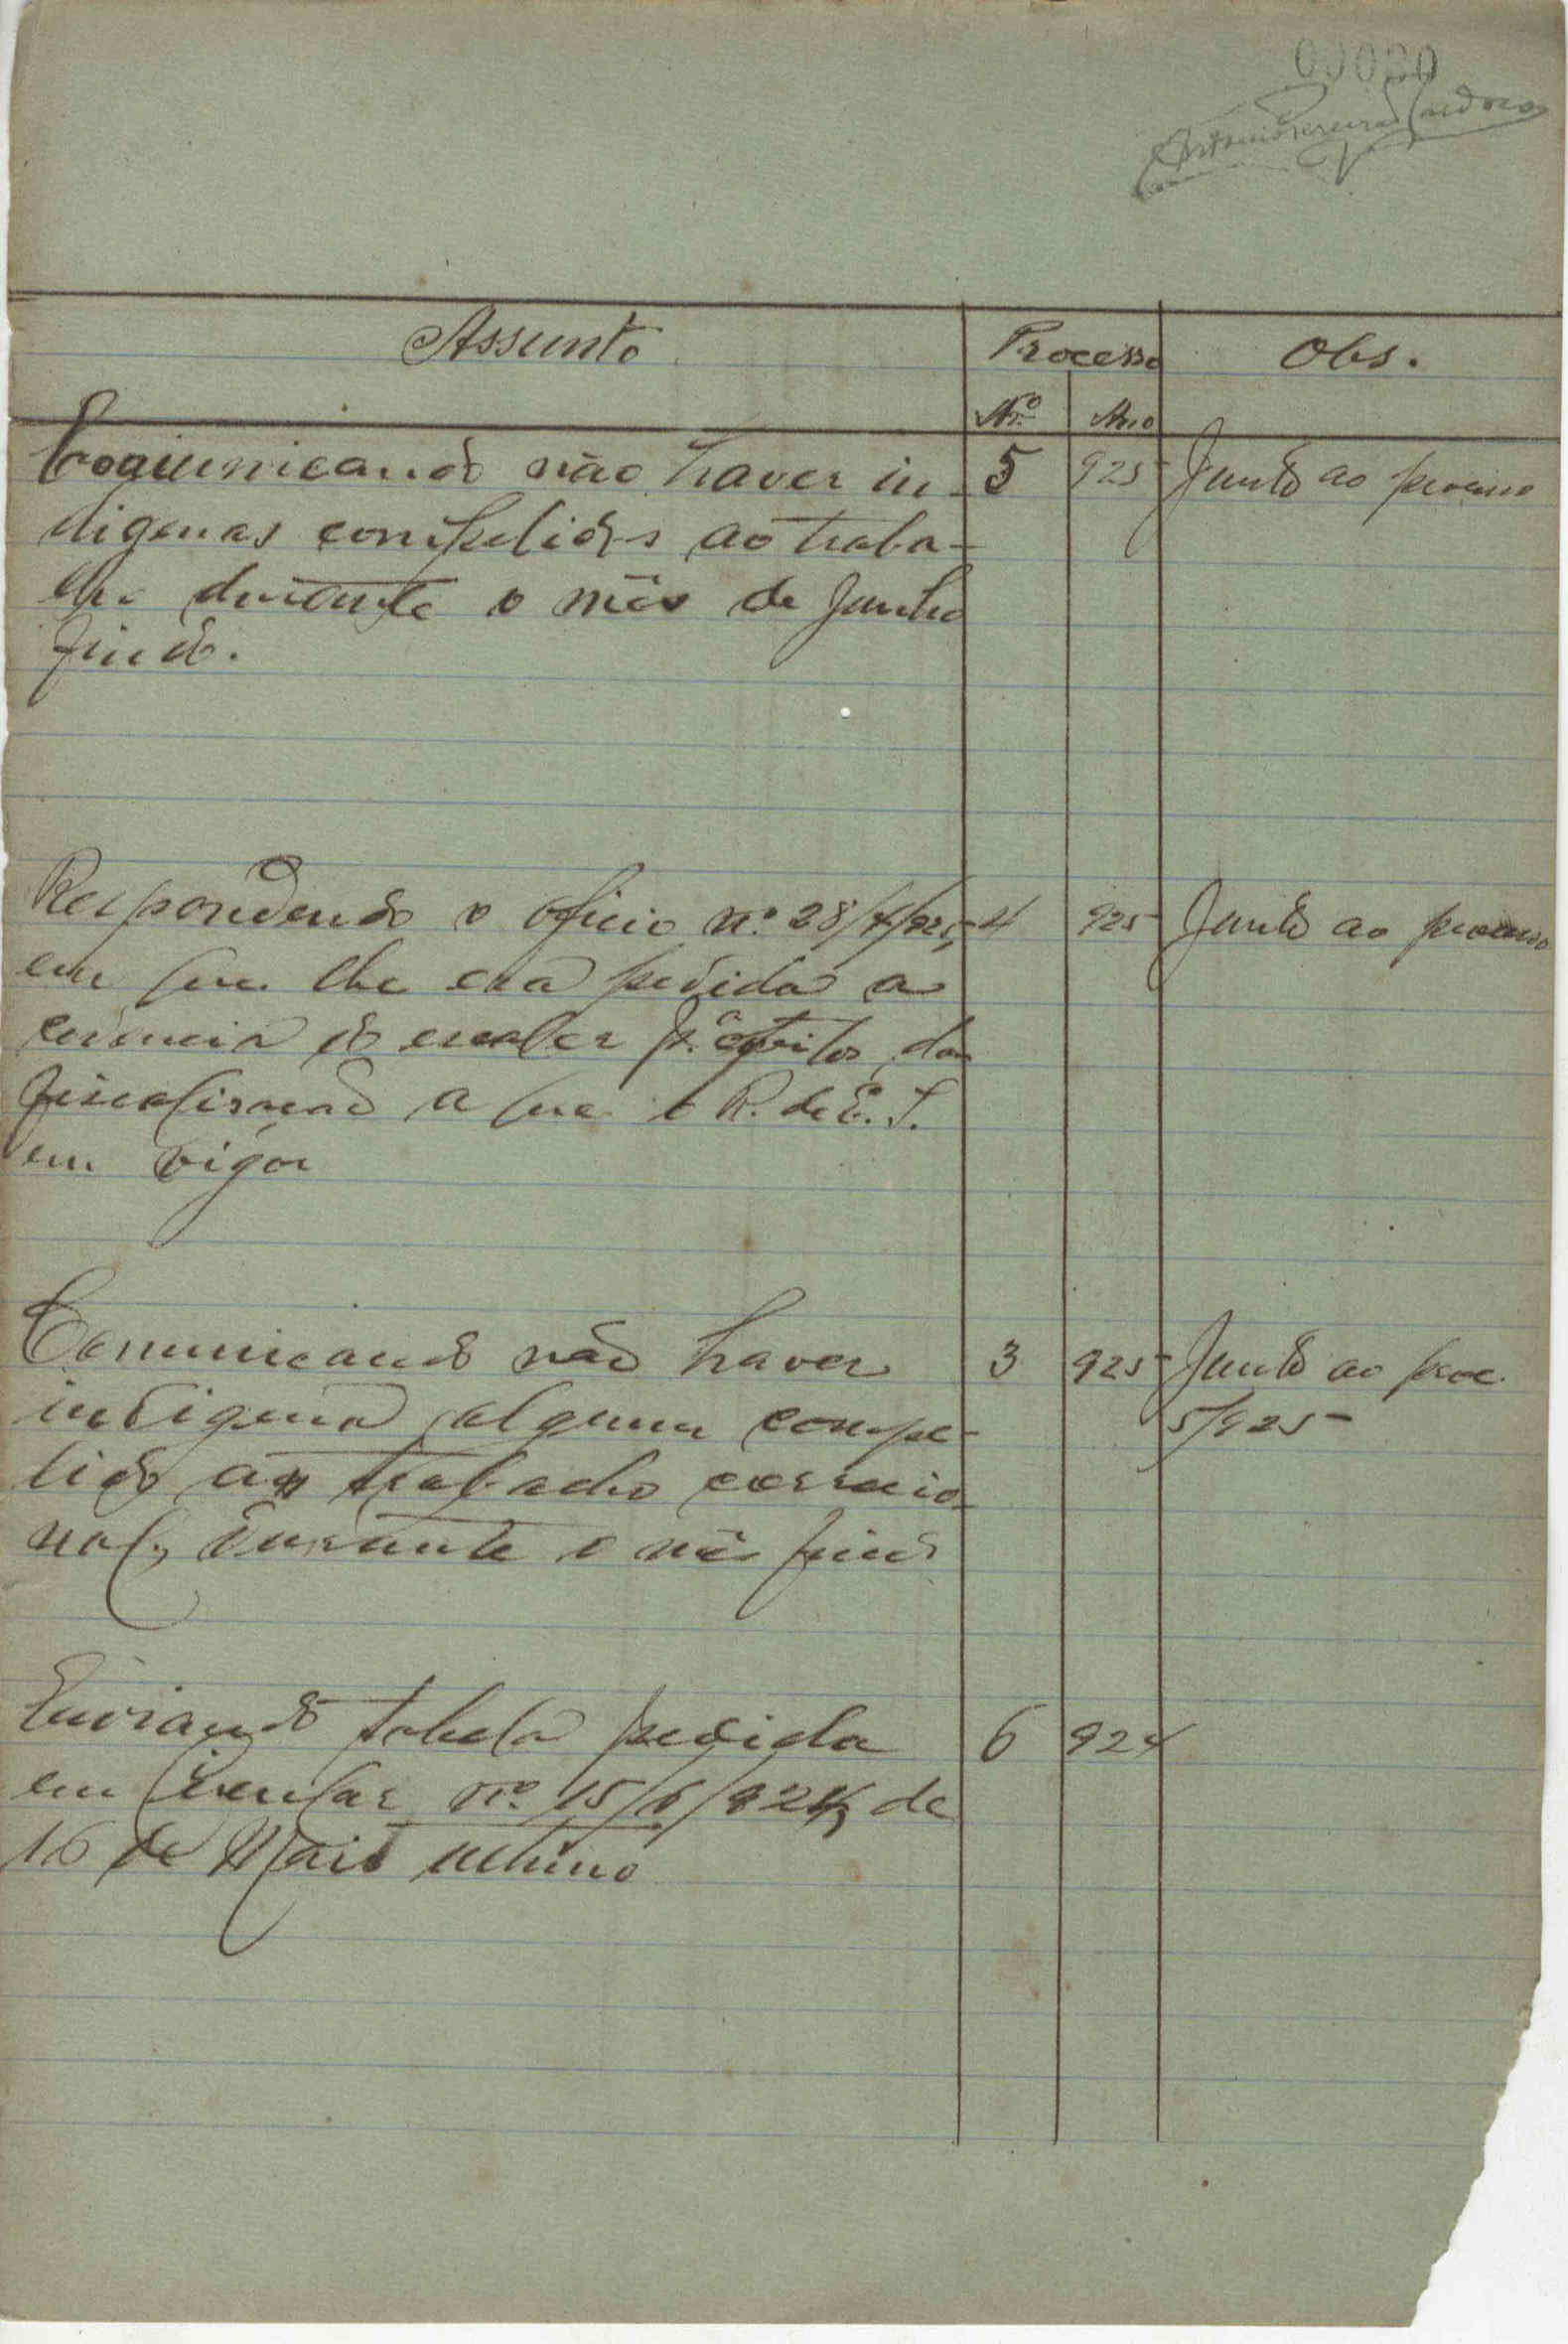 00080
Antonio Pereira Cardoso
Assunto Processo Obs.
Nº Ano
Comunicando não haver in- 5 925 Junto ao processo
digenas compelidos ao traba-
lho durante o mês de Junho
findo.
Respondendo o oficio nº 28/4/925, 4 925 Junto ao processo
em que lhe era pedida a
cedencia do escaler p.ª efeitos da
fiscalisacão a que o R. de E. S.
em vigor
Comunicando não haver 3 925 Junto ao proc.
indigena algum compe- 5/925
lido ao trabalho correcio-
nal, durante o mês findo
Enviando tabela pedida 6 924
em Circular nº 15/6/924, de
16 de Maio ultimo